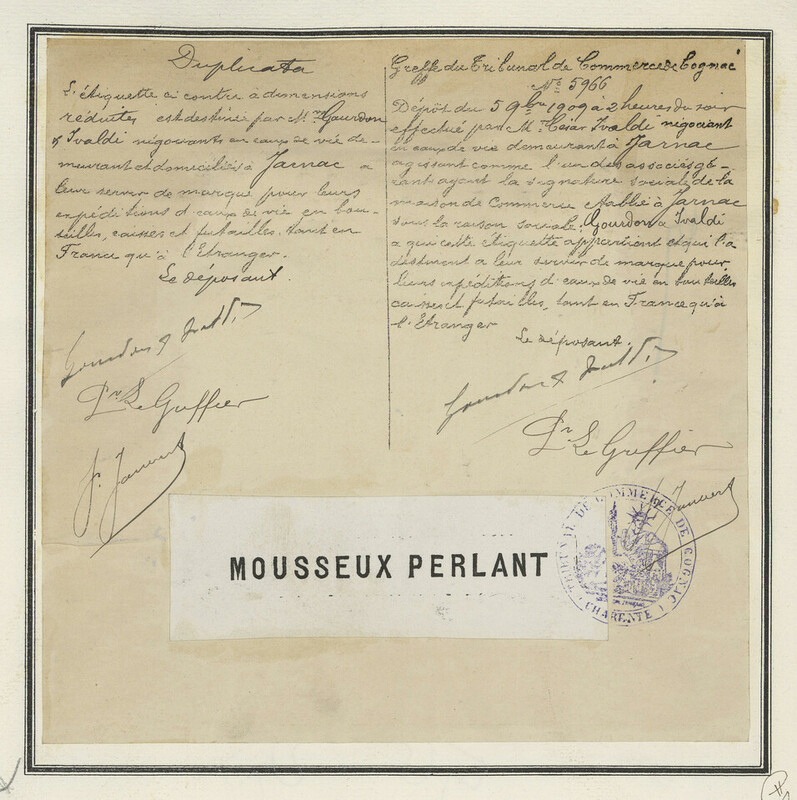 Duplicata
L'étiquette ci contre à dimensions
réduites est destinée par Mrs Gourdon
& Ivaldi négociants en eaux de vie de-
meurant et domiciliés à Jarnac a
leur servir de marque pour leurs
expéditions d'eaux de vie en bou-
teilles, caisses et futailles. tant en
France qu'à l'Etranger.
Le déposant.
Gourdon & Ivaldi
Pr Le Greffier
Greffe du Tribunal de Commerce de Cognac
No 5966
Dépôt du 5 9bre 1909 à 2 heures du soir
effectué par Mr César Ivaldi négociant
en eaux de vie demeurant à Jarnac
agissant comme l'un des associés gé-
rant ayant la signature sociale de la
maison de Commerce établie à Jarnac
sous la raison sociale. Gourdon & Ivaldi
a qui cette étiquette appartient et qui l'a
destinent a leur servir de marque pour
leurs expéditions d'eaux de vie en bouteilles
caisses et futailles, tant en France qu'à
l'Etranger
Le déposant.
Gourdon & Ivaldi
Pr Le Greffier
MOUSSEUX PERLANT
TRIBUNAL DE COMMERCE DE COGNAC
CHARENTE